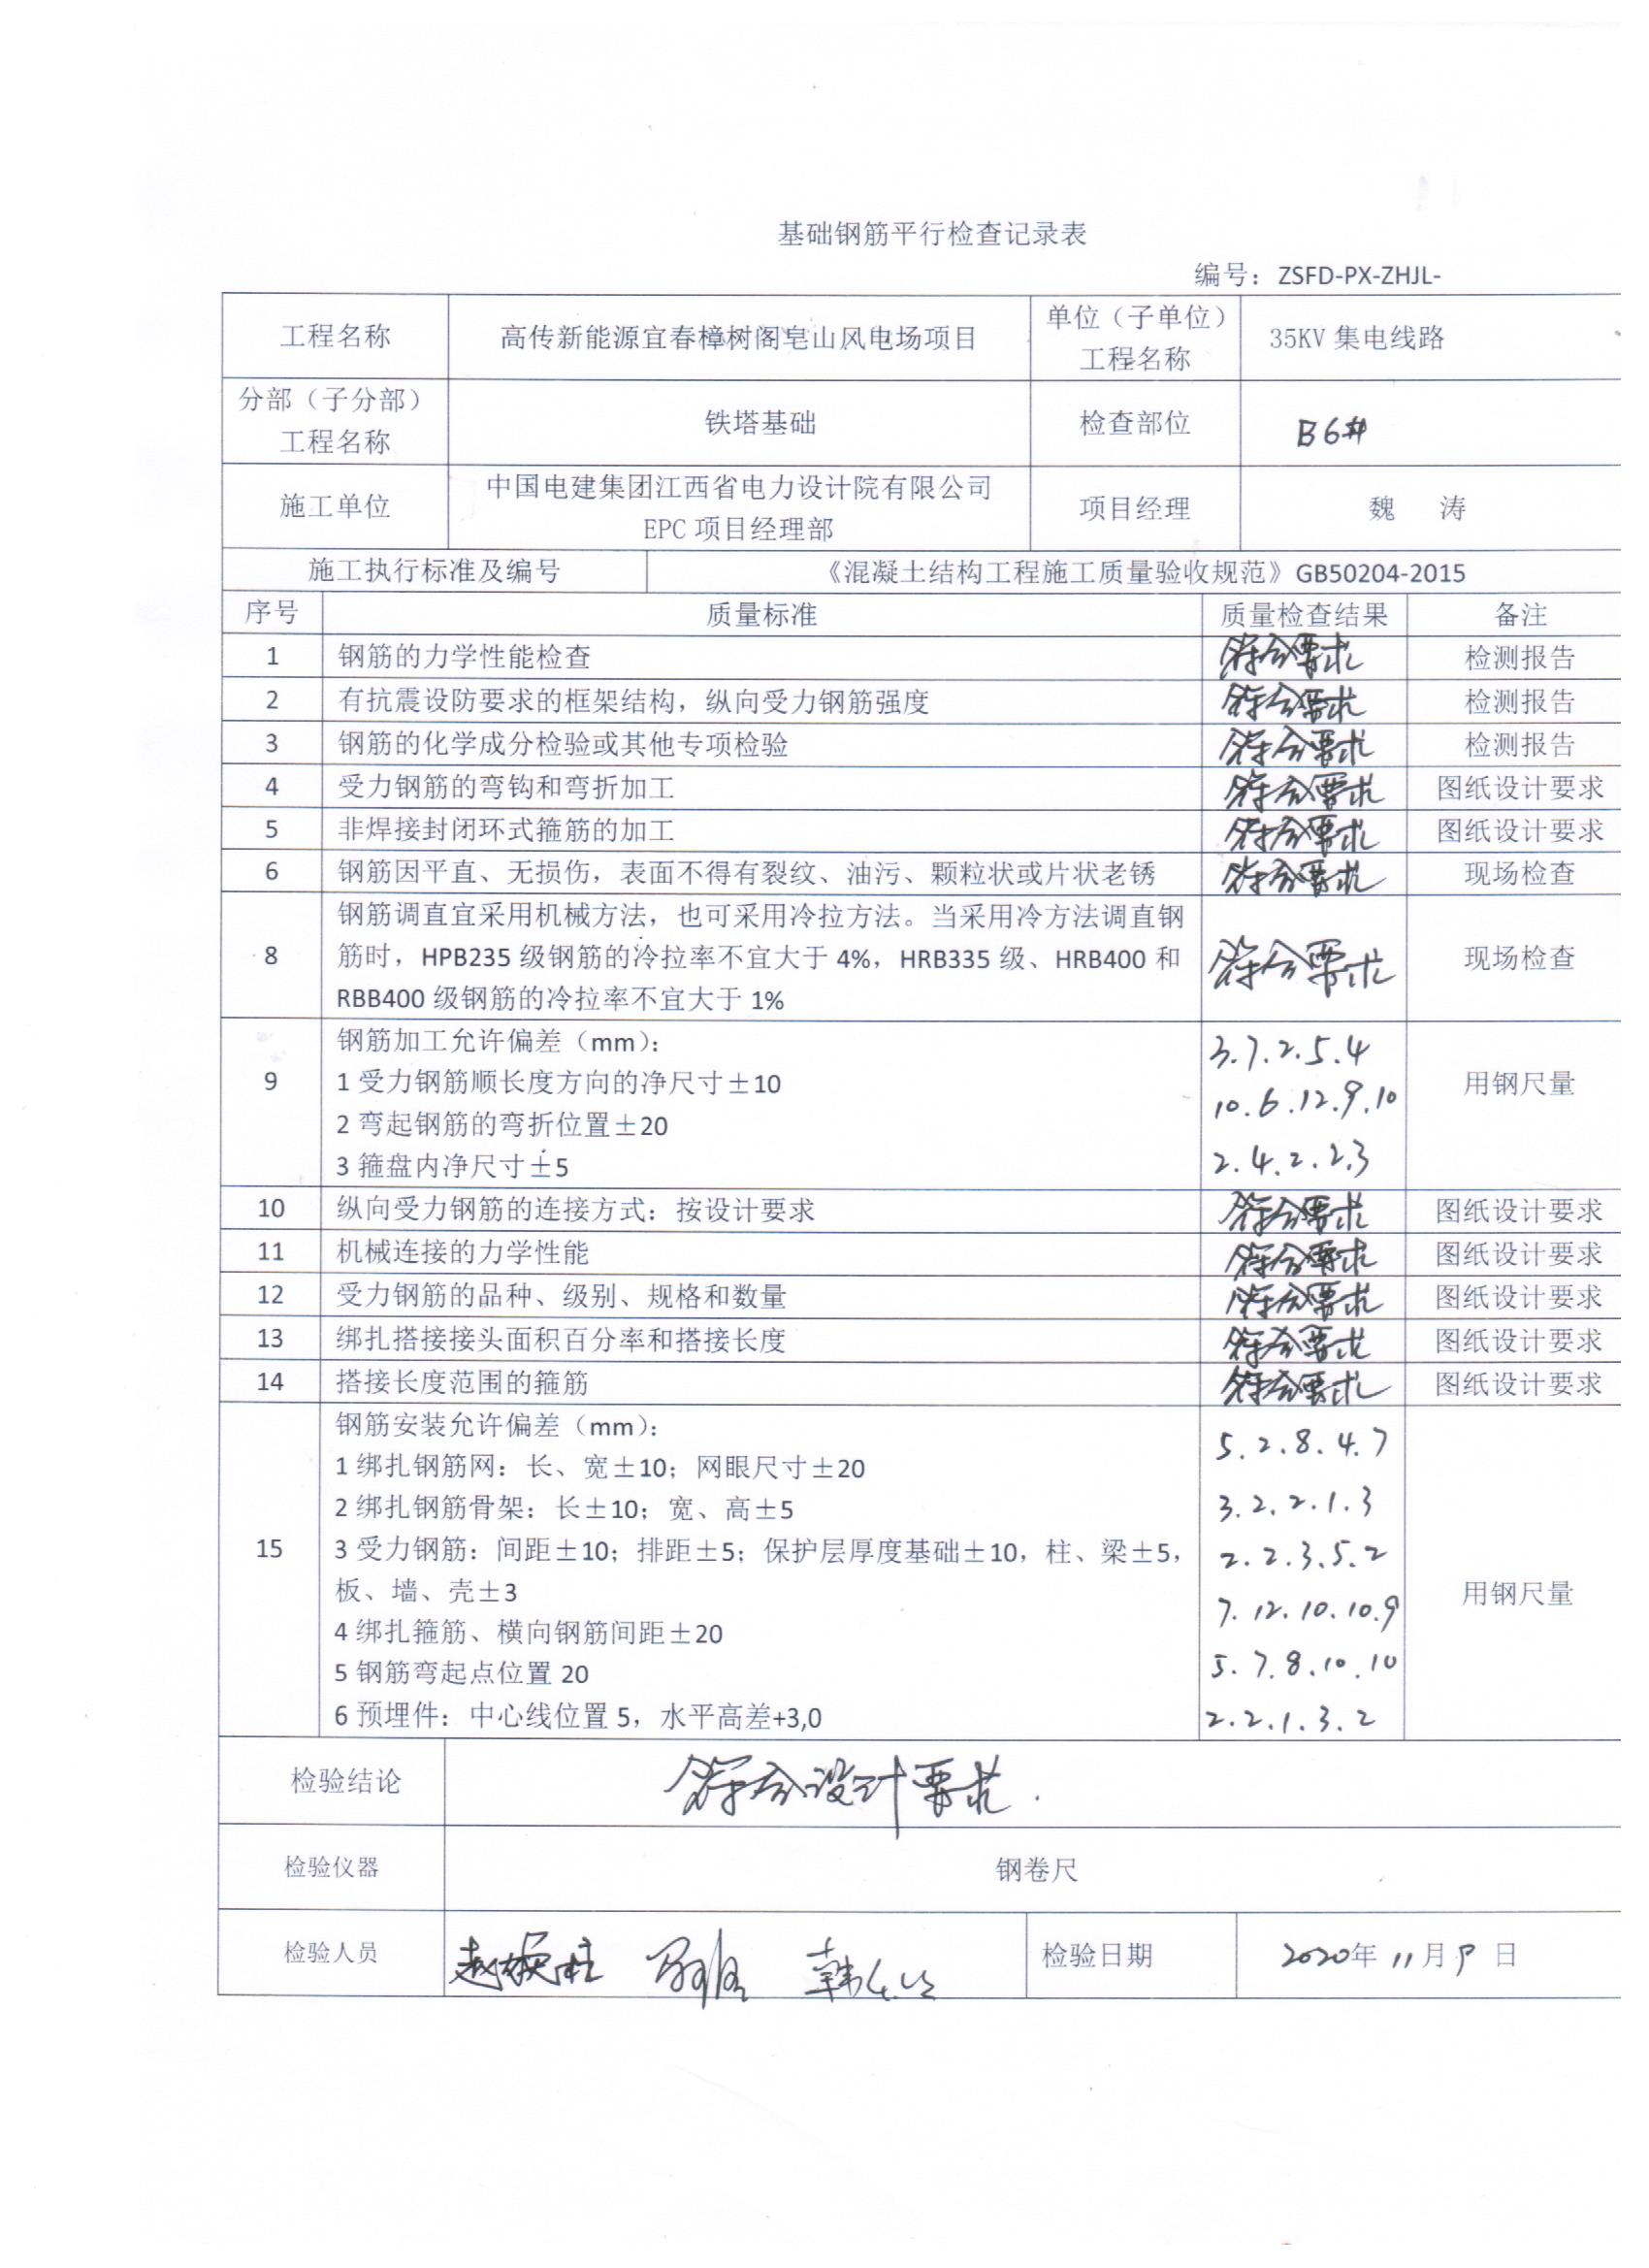 基础钢筋平行检查记录表
编号：ZSFD-PX-ZHJL-
工程名称 高传新能源宜春樟树阁皂山风电场项目 单位（子单位）工程名称 35KV 集电线路
分部（子分部）工程名称 铁塔基础 检查部位 B6#
施工单位 中国电建集团江西省电力设计院有限公司 EPC 项目经理部 项目经理 魏 涛
施工执行标准及编号 《混凝土结构工程施工质量验收规范》GB50204-2015
序号 质量标准 质量检查结果 备注
1 钢筋的力学性能检查 符合要求 检测报告
2 有抗震设防要求的框架结构，纵向受力钢筋强度 符合要求 检测报告
3 钢筋的化学成分检验或其他专项检验 符合要求 检测报告
4 受力钢筋的弯钩和弯折加工 符合要求 图纸设计要求
5 非焊接封闭环式箍筋的加工 符合要求 图纸设计要求
6 钢筋因平直、无损伤，表面不得有裂纹、油污、颗粒状或片状老锈 符合要求 现场检查
钢筋调直宜采用机械方法，也可采用冷拉方法。当采用冷方法调直钢
8 筋时，HPB235 级钢筋的冷拉率不宜大于 4%，HRB335 级、HRB400 和 符合要求 现场检查
RBB400 级钢筋的冷拉率不宜大于 1%
钢筋加工允许偏差（mm）： 3.7.2.5.4
9 1 受力钢筋顺长度方向的净尺寸±10 用钢尺量
2 弯起钢筋的弯折位置±20 10.6.12.9.10
3 箍盘内净尺寸±5 2.4.2.2.3
10 纵向受力钢筋的连接方式：按设计要求 符合要求 图纸设计要求
11 机械连接的力学性能 符合要求 图纸设计要求
12 受力钢筋的品种、级别、规格和数量 符合要求 图纸设计要求
13 绑扎搭接接头面积百分率和搭接长度 符合要求 图纸设计要求
14 搭接长度范围的箍筋 符合要求 图纸设计要求
钢筋安装允许偏差（mm）： 5.2.8.4.7
1 绑扎钢筋网：长、宽±10；网眼尺寸±20
2 绑扎钢筋骨架：长±10；宽、高±5 3.2.2.1.3
15 3 受力钢筋：间距±10；排距±5；保护层厚度基础±10，柱、梁±5， 2.2.3.5.2
板、墙、壳±3 用钢尺量
4 绑扎箍筋、横向钢筋间距±20 7.12.10.10.9
5 钢筋弯起点位置 20 5.7.8.10.10
6 预埋件：中心线位置 5，水平高差+3,0 2.2.1.3.2
检验结论 符合设计要求.
检验仪器 钢卷尺
检验人员 检验日期 2020年 11月 9 日